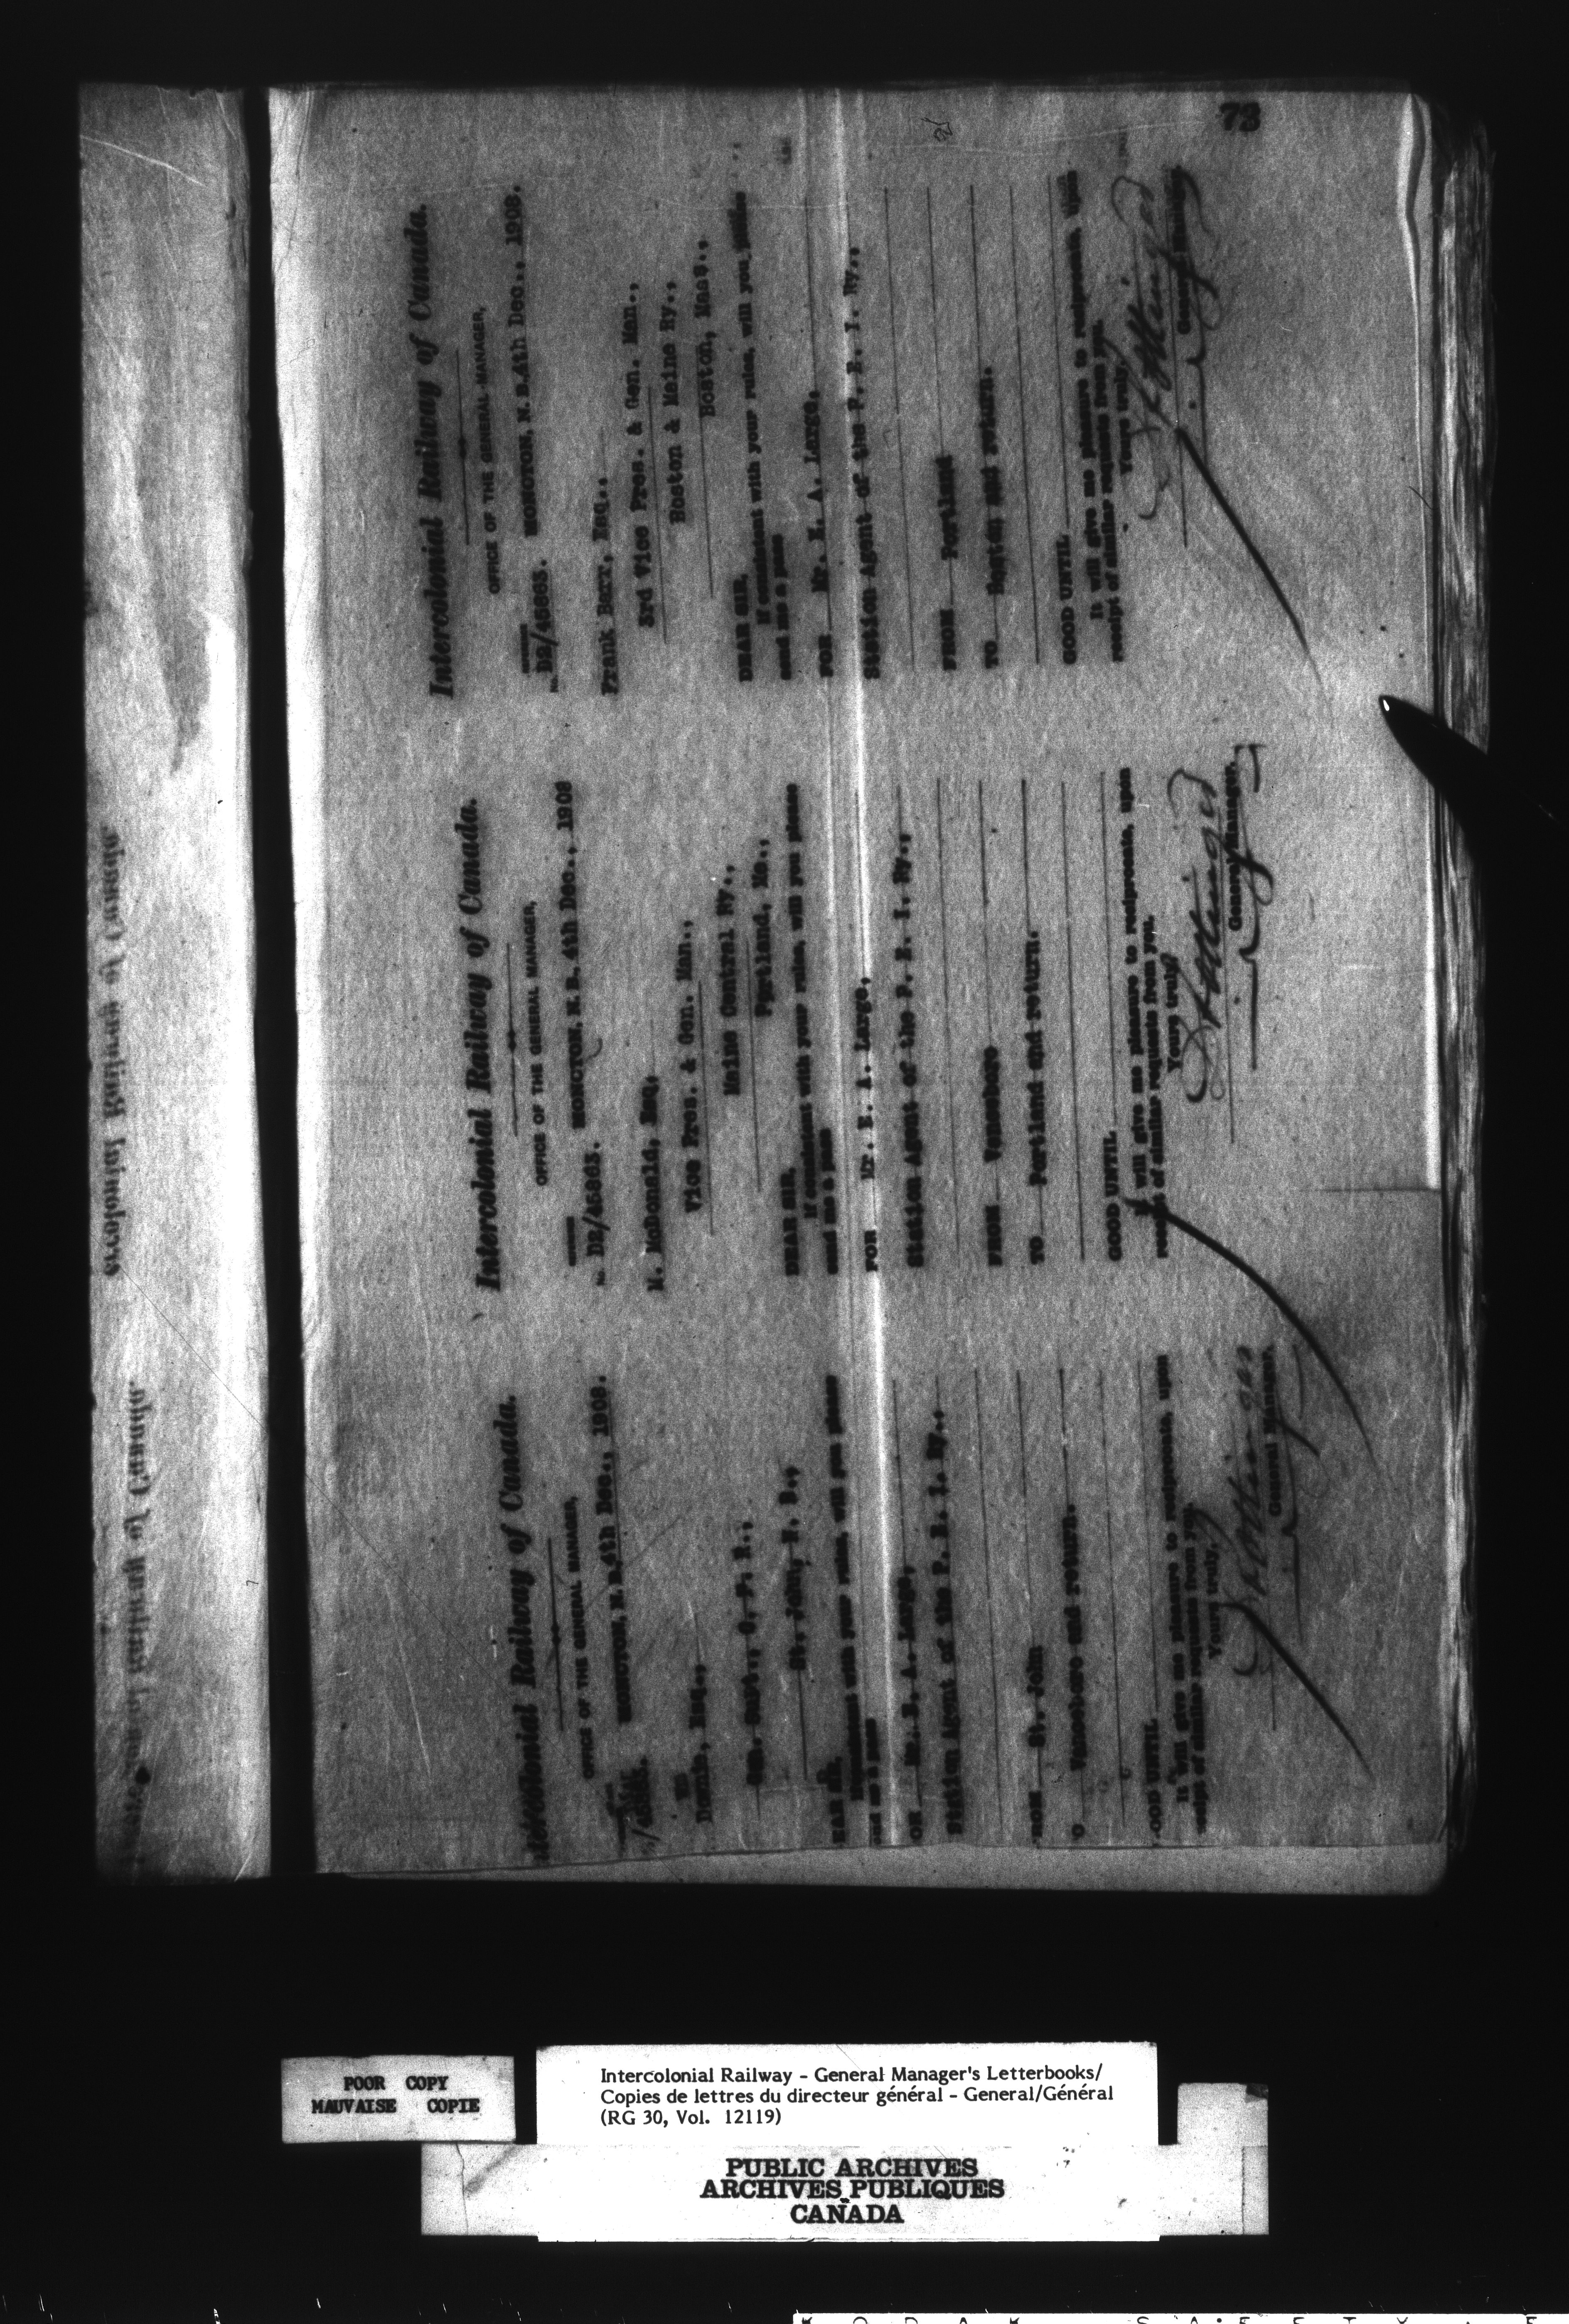 73
Intercolonial Railway of Canada.
OFFICE OF THE GENERAL MANAGER,
MONCTON, N. B. 4th Dec., 1908.
DEAR SIR,
If consistent with your rules, will you please
send me a pass
FOR Mr. E. A. Large,
Station Agent of the P. E. I. Ry.,
FROM St. John
TO Vanceboro and return.
GOOD UNTIL
It will give me pleasure to reciprocate, upon
receipt of similar requests from you.
Yours truly,
General Manager.
Intercolonial Railway of Canada.
OFFICE OF THE GENERAL MANAGER,
MONCTON, N. B. 4th Dec., 1908
M. McDonald, Esq.,
Vice Pres. & Gen. Man.,
Maine Central Ry.,
Portland, Me.,
DEAR SIR,
If consistent with your rules, will you please
send me a pass
FOR Mr. E. A. Large,
Station Agent of the P. E. I. Ry.,
FROM Vanceboro
TO Portland and return.
GOOD UNTIL
It will give me pleasure to reciprocate, upon
receipt of similar requests from you.
Yours truly,
General Manager.
Intercolonial Railway of Canada.
OFFICE OF THE GENERAL MANAGER,
MONCTON, N. B. 4th Dec., 1908.
Frank Barr, Esq.,
3rd Vice Pres. & Gen. Man.,
Boston & Maine Ry.,
Boston, Mass.,
DEAR SIR,
If consistent with your rules, will you please
send me a pass
FOR Mr. E. A. Large,
Station Agent of the P. E. I. Ry.,
FROM Portland
TO Boston and return.
GOOD UNTIL
It will give me pleasure to reciprocate, upon
receipt of similar requests from you.
Yours truly,
General Manager
POOR COPY
MAUVAISE COPIE
Intercolonial Railway - General Manager's Letterbooks/
Copies de lettres du directeur général - General/Général
(RG 30, Vol. 12119)
PUBLIC ARCHIVES
ARCHIVES PUBLIQUES
CANADA